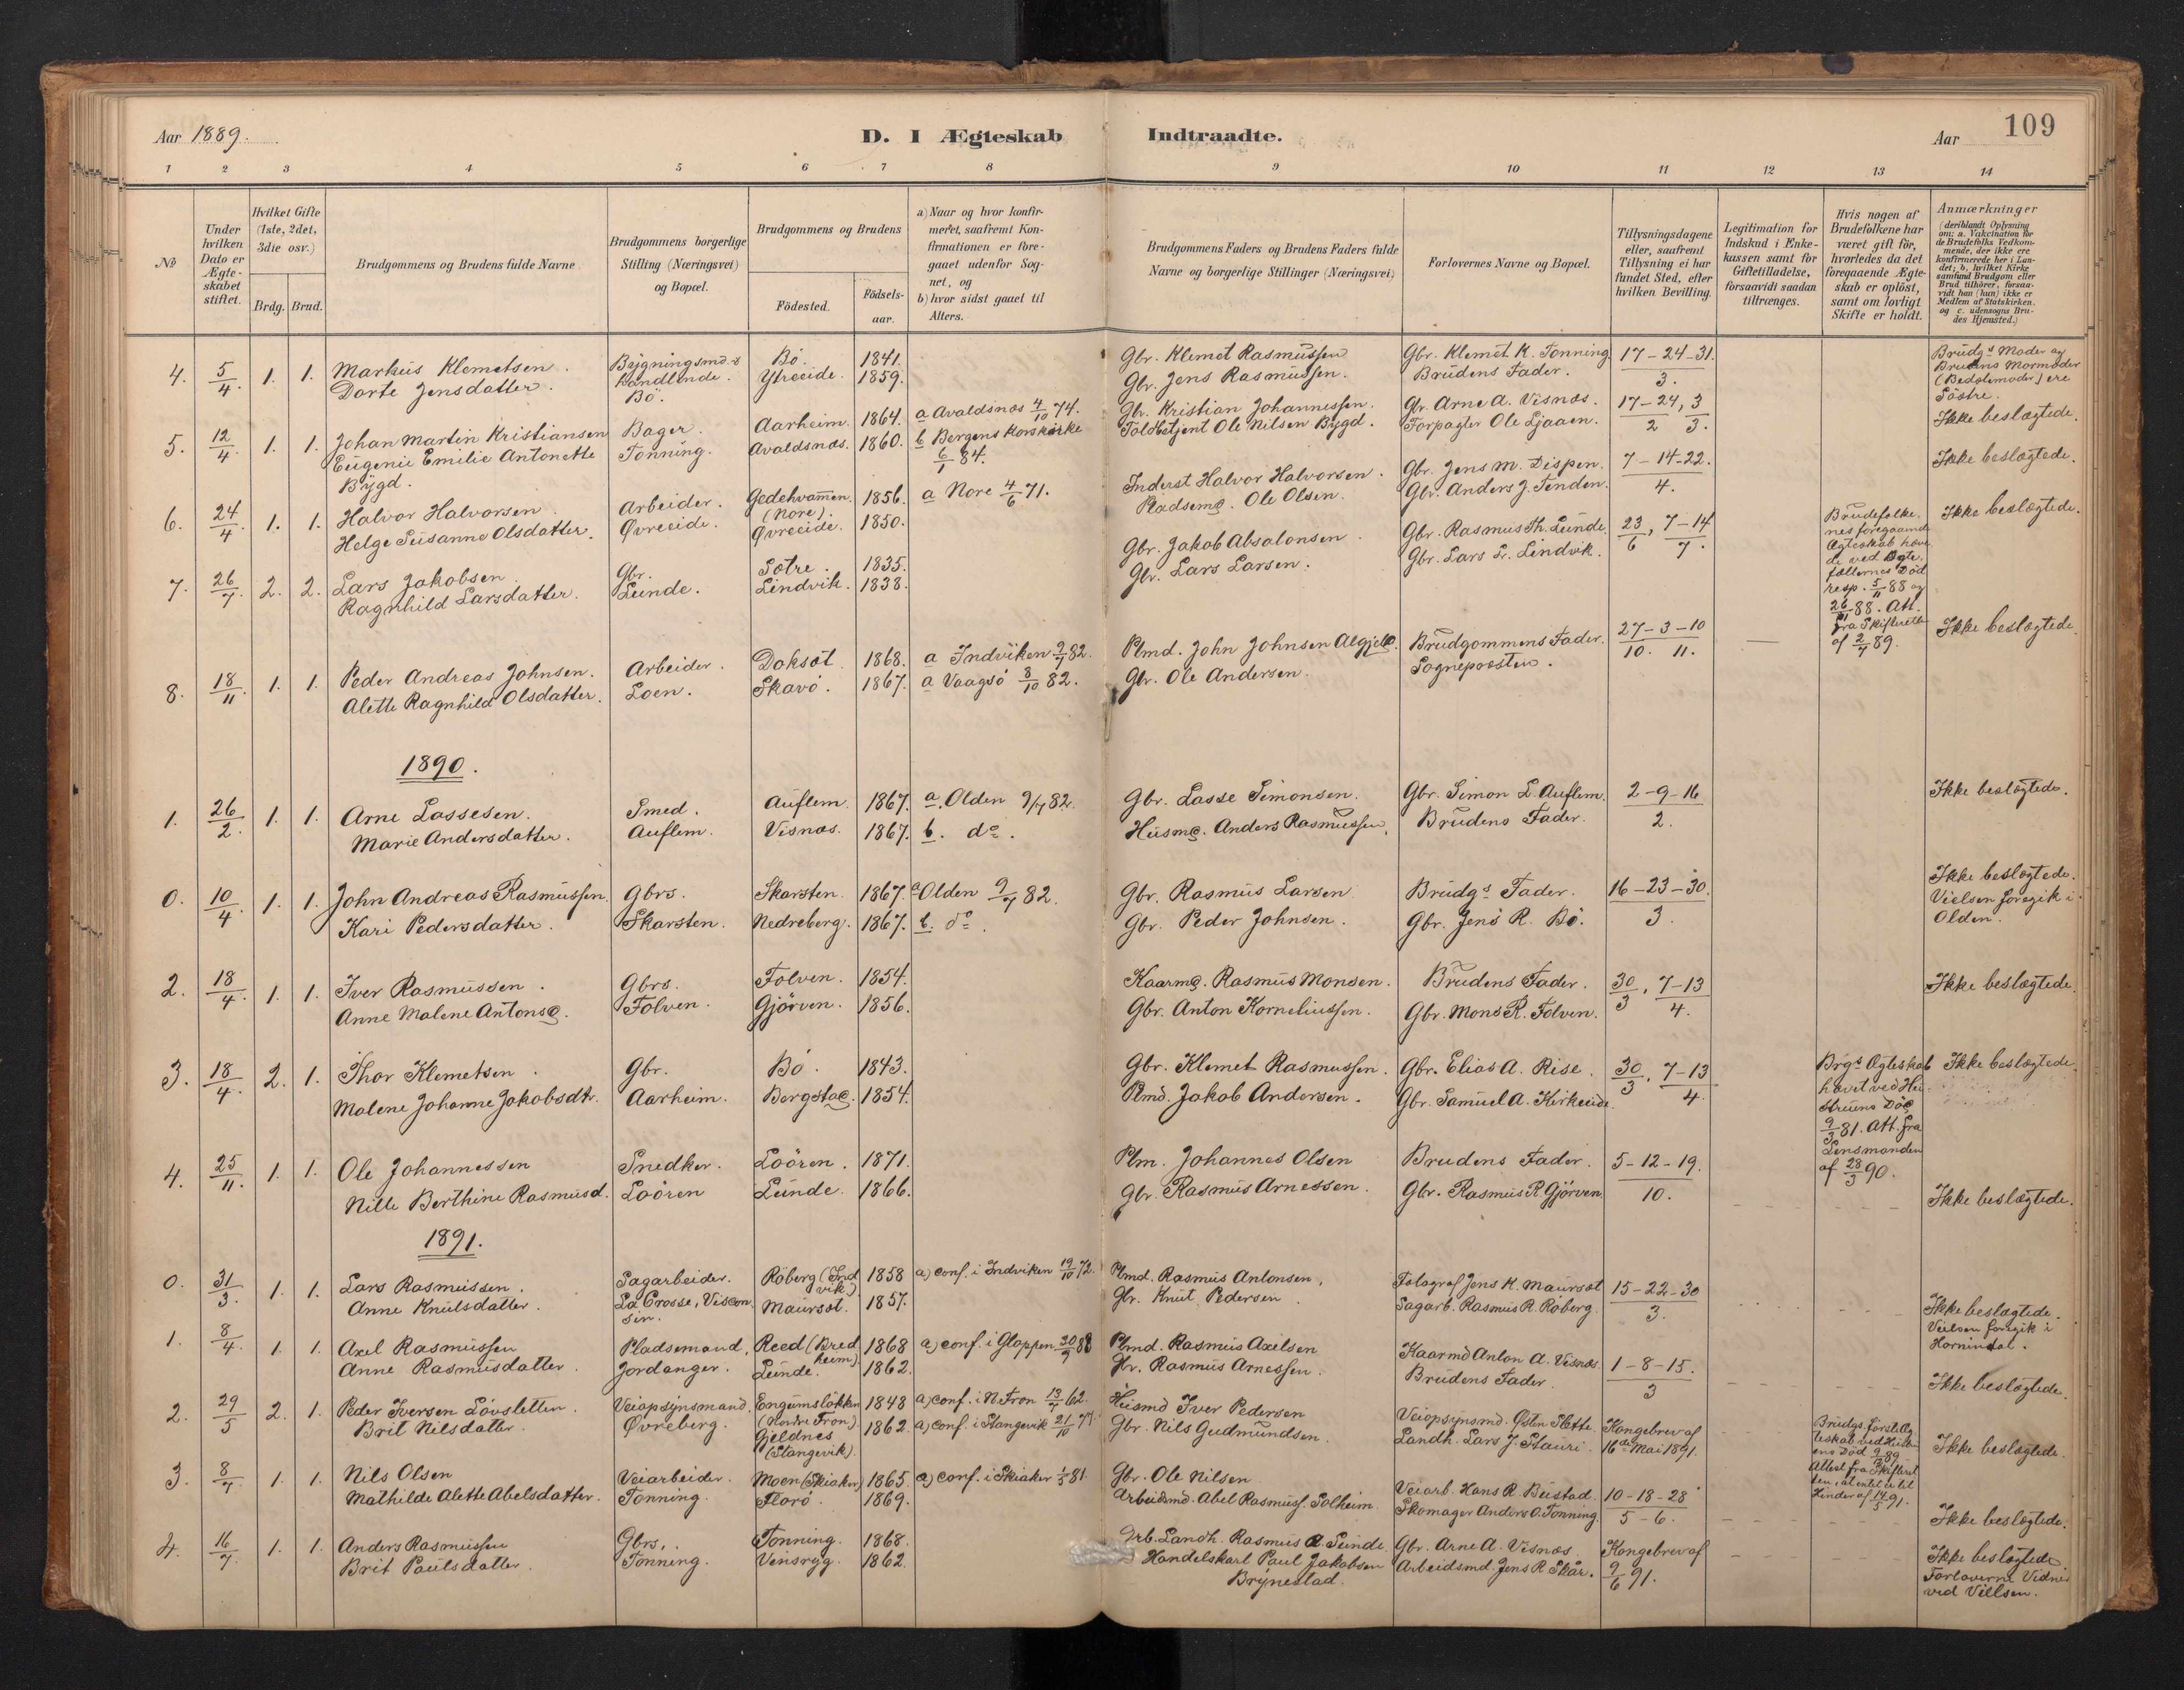 Aar 1889.
D. I Ægteskab Indtraadte.
Aar 109
1 2 3 4 5 6 7 8 9 10 11 12 13 14
No
Under hvilken Dato er Ægteskabet stiftet.
Hvilket Gifte (1ste, 2det, 3die osv.)
Brdg. Brud.
Brudgommens og Brudens fulde Navne
Brudgommens borgerlige Stilling (Næringsvei) og Bopæl.
Brudgommens og Brudens
Födested.
Födselsaar.
a) Naar og hvor konfirmeret, saafremt Konfirmationen er foregaaet udenfor Sognet, og
b) hvor sidst gaaet til Alters.
Brudgommens Faders og Brudens Faders fulde Navne og borgerlige Stillinger (Næringsvei)
Forlovernes Navne og Bopæl.
Tillysningsdagene eller, saafremt Tillysning ei har fundet Sted, efter hvilken Bevilling.
Legitimation for Indskud i Enkekassen samt for Giftetilladelse, forsaavidt saadan tiltrænges.
Hvis nogen af Brudefolkene har været gift för, hvorledes da det foregaaende Ægteskab er oplöst, samt om lovligt Skifte er holdt.
Anmærkninger (deriblandt Oplysning om: a. Vakcination for de Brudefolks Vedkommende, der ikke ere konfirmerede her i Landet; b. hvilket Kirkesamfund Brudgom eller Brud tilhörer, forsaavidt han (hun) ikke er Medlem af Statskirken. og c. udensogns Brudes Hjemsted.)
4. 5/4. 1. 1. Markus Klemetsen. Bygningsmd. & Bö. 1841. Gbr. Klemet Rasmussen Gbr. Klemet K. Tonning 17-24-31. Brudgs Moder og
Dorte Jensdatter. Handlende. Ytreeide. 1859. Gbr. Jens Rasmussen. Brudens Fader. 3. Brudens Mormoder
Bö. (Bedstemoder) ere
Söstre.
5. 12/4. 1. 1. Johan Martin Kristiansen Bager. Aarheim. 1864. a Avaldsnæs 4/10 74. Gbr. Kristian Johannessen. Gbr. Arne A. Visnæs. 17-24, 3 Ikke beslægtede.
Eugenie Emilie Antonette Tonning. Avaldsnæs. 1860. b Bergens Korskirke Toldbetjent Ole Nilsen Bygd. Forpagter Ole Ljaaen. 2 3.
Bygd. 6/1 84.
6. 24/4. 1. 1. Halvor Halvorsen. Arbeider. Gedehvamen. 1856. a Nore 4/6 71. Inderst Halvor Halvorsen. Gbr. Jens M. Dispen. 7-14-22. Ikke beslægtede.
Helge Susanne Olsdatter. Øvreeide. (Nore). Pladsemd. Ole Olsen. Gbr. Anders J. Tenden. 4.
Øvreeide. 1850.
7. 26/7. 2. 2. Lars Jakobsen. Gbr. Sætre. 1835. Gbr. Jakob Absalonsen. Gbr. Rasmus Th. Lunde. 23/6, 7-14/7. Brudefolke- Ikke beslægtede.
Ragnhild Larsdatter. Lunde. Lindvik. 1838. Gbr. Lars Larsen. Gbr. Lars L. Lindvik. nes foregaaende
Ægteskab hæve-
de ved Ægte-
fællernes Död
resp. 5/11 88 og
26/11 88. Att.
fra Skifteretten
af 2/7 89.
8. 18/11. 1. 1. Peder Andreas Johnsen. Arbeider. Doksæt. 1868. a Indviken 9/7 82. Plmd. John Johnsen Algjeld. Brudgommens Fader. 27-3-10 — Ikke beslægtede.
Alette Ragnhild Olsdatter. Loen. Skavö. 1867. a Vaagsö 8/10 82. Gbr. Ole Andersen. Sognepræsten. 10. 11.
1890.
1. 26/2. 1. 1. Arne Lassesen. Smed. Auflem. 1867. a. Olden 9/7 82. Gbr. Lasse Simonsen. Gbr. Simon L. Auflem. 2-9-16 Ikke beslægtede.
Marie Andersdatter. Auflem. Visnæs. 1867. b. do. Husmd. Anders Rasmussen. Brudens Fader. 2.
0. 10/4. 1. 1. John Andreas Rasmussen Gbrs. Skarsten. 1867. a Olden 9/7 82. Gbr. Rasmus Larsen Brudgs Fader. 16-23-30. Ikke beslægtede.
Kari Pedersdatter. Skarsten. Nedreberg. 1867. b. do. Gbr. Peder Johnsen. Gbr. Jens R. Bö. 3. Vielsen foregik i
Olden.
2. 18/4. 1. 1. Iver Rasmussen. Gbrs. Folven. 1854. Kaarmd. Rasmus Monsen. Brudens Fader. 30/3, 7-13/4. Ikke beslægtede.
Anne Malene Antonsd. Folven. Gjörven. 1856. Gbr. Anton Korneliussen. Gbr. Mons R. Folven.
3. 18/4. 2. 1. Thor Klemetsen. Gbr. Bö. 1843. Gbr. Klemet Rasmussen. Gbr. Elias A. Rise. 30/3, 7-13/4. Brgs Ægteskab Ikke beslægtede.
Malene Johanne Jakobsdtr. Aarheim. Bergstad. 1854. Plmd. Jakob Andersen. Gbr. Samuel A. Kirkeide. hævet ved Hu-
struens Död
9/3 81. Att. fra
Lensmanden
af 28/3 90.
4. 25/11. 1. 1. Ole Johannessen Snedker. Loören. 1871. Plm. Johannes Olsen Brudens Fader. 5-12-19.
Nille Berthine Rasmusd. Loören Lunde. 1866. Gbr. Rasmus Arnessen. Gbr. Rasmus R. Gjörven. 10. Ikke beslægtede.
1891.
0. 31/3. 1. 1. Lars Rasmussen. Sagarbeider. Röberg (Ind 1858 a) conf. i Indviken 19/10 72. Plmd. Rasmus Antonsen. Fotograf Jens K. Maursæt 15-22-30
Anne Knutsdatter. La Crosse, Viscon- vik) Gbr. Knut Pedersen Sagarb. Rasmus R. Röberg. 3. Ikke beslægtede.
sin. Maursæt. 1857. Vielsen foregik i
Hornindal.
1. 8/4. 1. 1. Axel Rasmussen Pladsemand. Reed (Bred 1868 a) conf. i Gloppen Plmd. Rasmus Axelsen Kaarmd Anton A. Visnæs. 1-8-15.
Anne Rasmusdatter. Jordanger. heim) Gbr. Rasmus Arnessen. Brudens Fader. 3 Ikke beslægtede.
Lunde. 1862.
2. 29/5 2. 1. Peder Iversen Lövsletten. Veiopsynsmand. Engumslökken 1848 a) conf. i N. Fron 13/7 62. Husmd Iver Pedersen Veiopsynsmd. Østn Slette. Kongebrev af Brudgs. förste Æg-
Brit Nilsdatter. Øvreberg. (Nordre Fron) Gbr. Nils Gudmundsen. Landh. Lars J. Stauri. 16de Mai 1891. teskab ved Hustru-
Gjeldnes 1862. a) conf. i Stangevik 21/10 77. ens Död Ikke beslægtede.
(Stangevik). Attest fra Skifteret
ten, at intet er til
Hinder af 14/5 91.
3. 8/7 1. 1. Nils Olsen Veiarbeider. Moen (Skiaker) 1865 a) conf. i Skiaker 81. Gbr. Ole Nilsen Veiarb. Hans R. Beistad. 10-18-28
Mathilde Alette Abelsdatter. Tonning. Florö. 1869. Arbeidsmd. Abel Rasmuss. Solheim. Skomager Anders O. Tonning. 5-6. Ikke beslægtede.
4. 16/7 1. 1. Anders Rasmussen Gbrs. Tonning. 1868. Landh. Rasmus Sunde. Gbr. Arne A. Visnæs. Kongebrev af Ikke beslægtede.
Brit Paulsdatter. Tonning. Vinsryg. 1862. Handelskarl Paul Jakobsen Arbeidsmd. Jens R. Skår. 9/6 91. Forloverne Vidner
Brynestad. ved Vielsen.